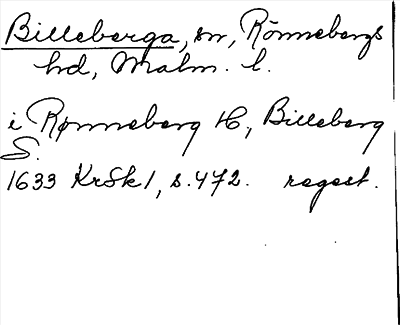 Billeberga, sn, Rönnebergs
hd, Malm. l.
i Rønneberg H, Billeberg
S.
1633 KrSk 1, s. 472. regest.